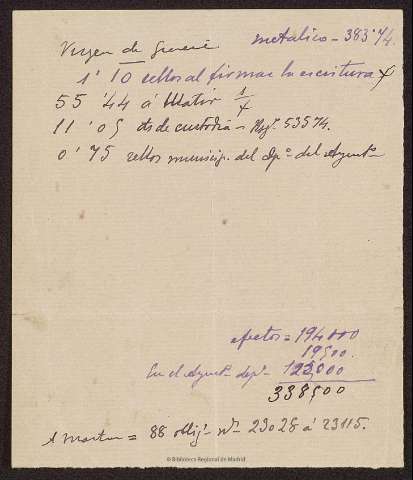 Virgen de metalico = 383'74.
1'10 sellos al firmar la escritura
55'44 á Matir
11'05 ds de custodia = Resg. 53574.
0'75 sellos municip. del Dpº del Ayuntº
efectos = 194000
19,500.
En el Ayuntº depº 125,000
338,500
A Martin = 88 oblig.s nº 23028 á 23115.
© Biblioteca Regional de Madrid